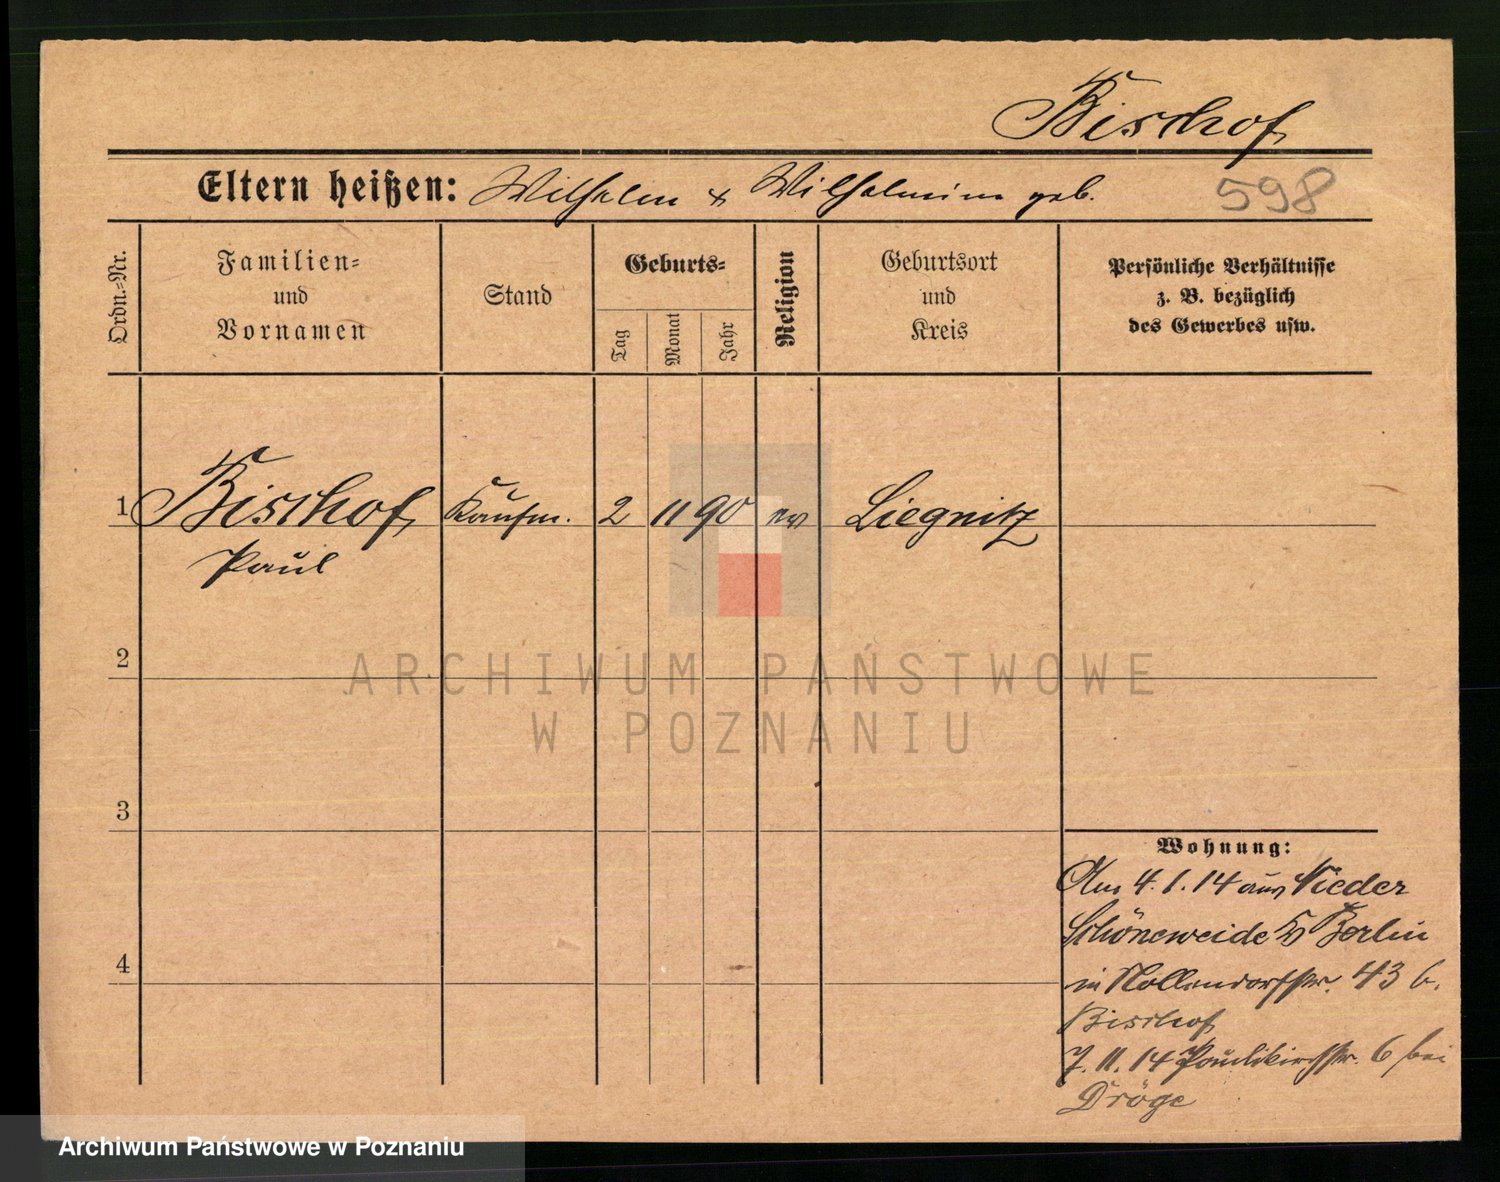 Bischof
Eltern heißen: Wilhelm & Wilhelmine geb.
598
Ordn.-Nr.
Familien-
und
Vornamen
Stand
Geburts-
Tag
Monat
Jahr
Religion
Geburtsort
und
Kreis
Persönliche Verhältnisse
z. B. bezüglich
des Gewerbes usw.
1 Bischof Kaufm. 2 11 90 ev Liegnitz
Paul
2
3
4
Wohnung:
Am 4.1.14 aus Nieder
Schöneweide b Berlin
in Nollendorfstr. 43 b.
Bischof
7.11.14 Paulikirchstr. 6 bei
Dröge
ARCHIWUM PAŃSTWOWE
W POZNANIU
Archiwum Państwowe w Poznaniu